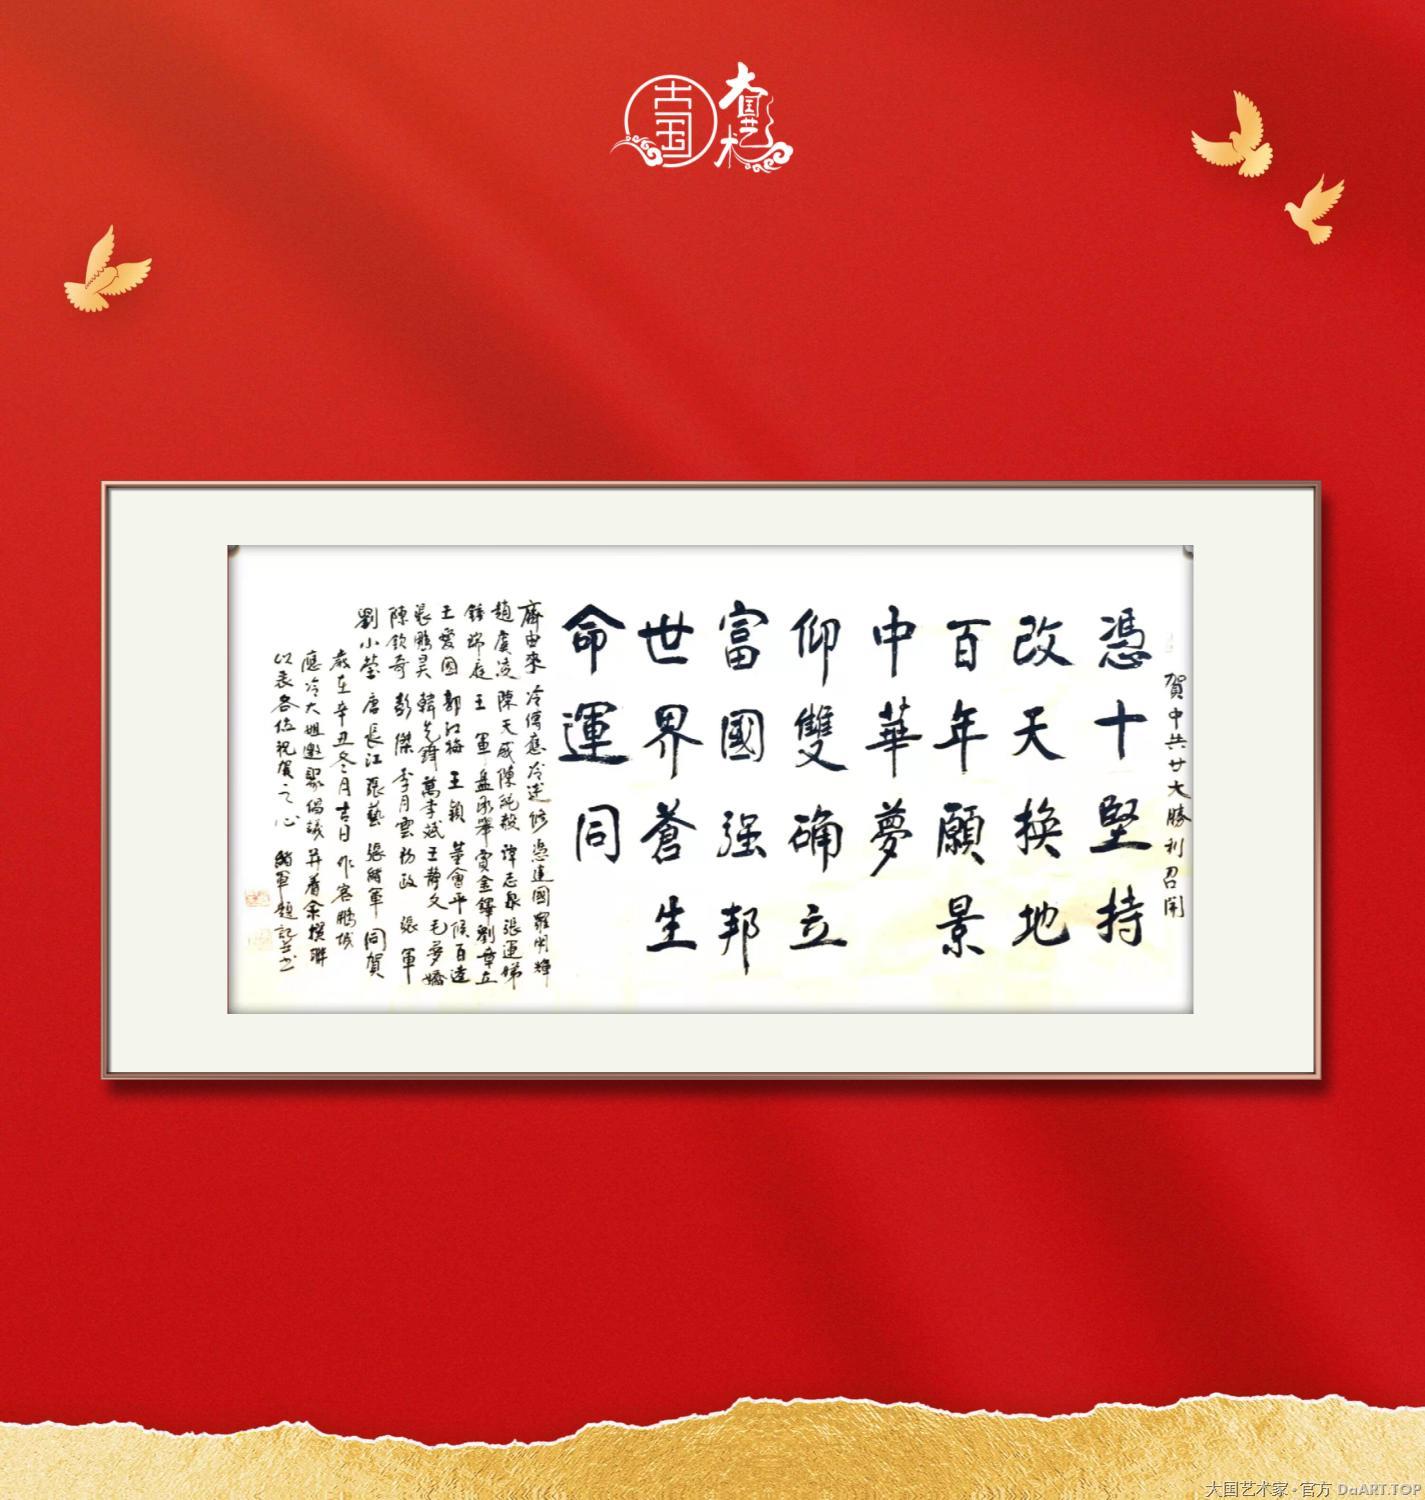 大国艺术
賀中共廿大勝利召開
憑十堅持
改天換地
百年願景
中華夢
仰雙确立
富國强邦
世界蒼生
命運同
齊由來
趙虞凌 陳天威 陳純毅 譚志泉 張運娣
王軍 孟承舉 賈金鐸 劉章立
王愛國 郭紅梅 王穎 董會平 候百達
張鵬昊 韓先鋒 萬李斌 王静文 毛夢嬌
陳欽奇 彭傑 李月雲 張軍
劉小瑩 唐長江 張藝 張緒軍 同賀
歲在辛丑冬月吉日作客鵬城
應冷大姐邀聚倡議并着余撰聯
以表各位祝賀之心 緒軍題記并书
大国艺术家·官方 DaART.TOP